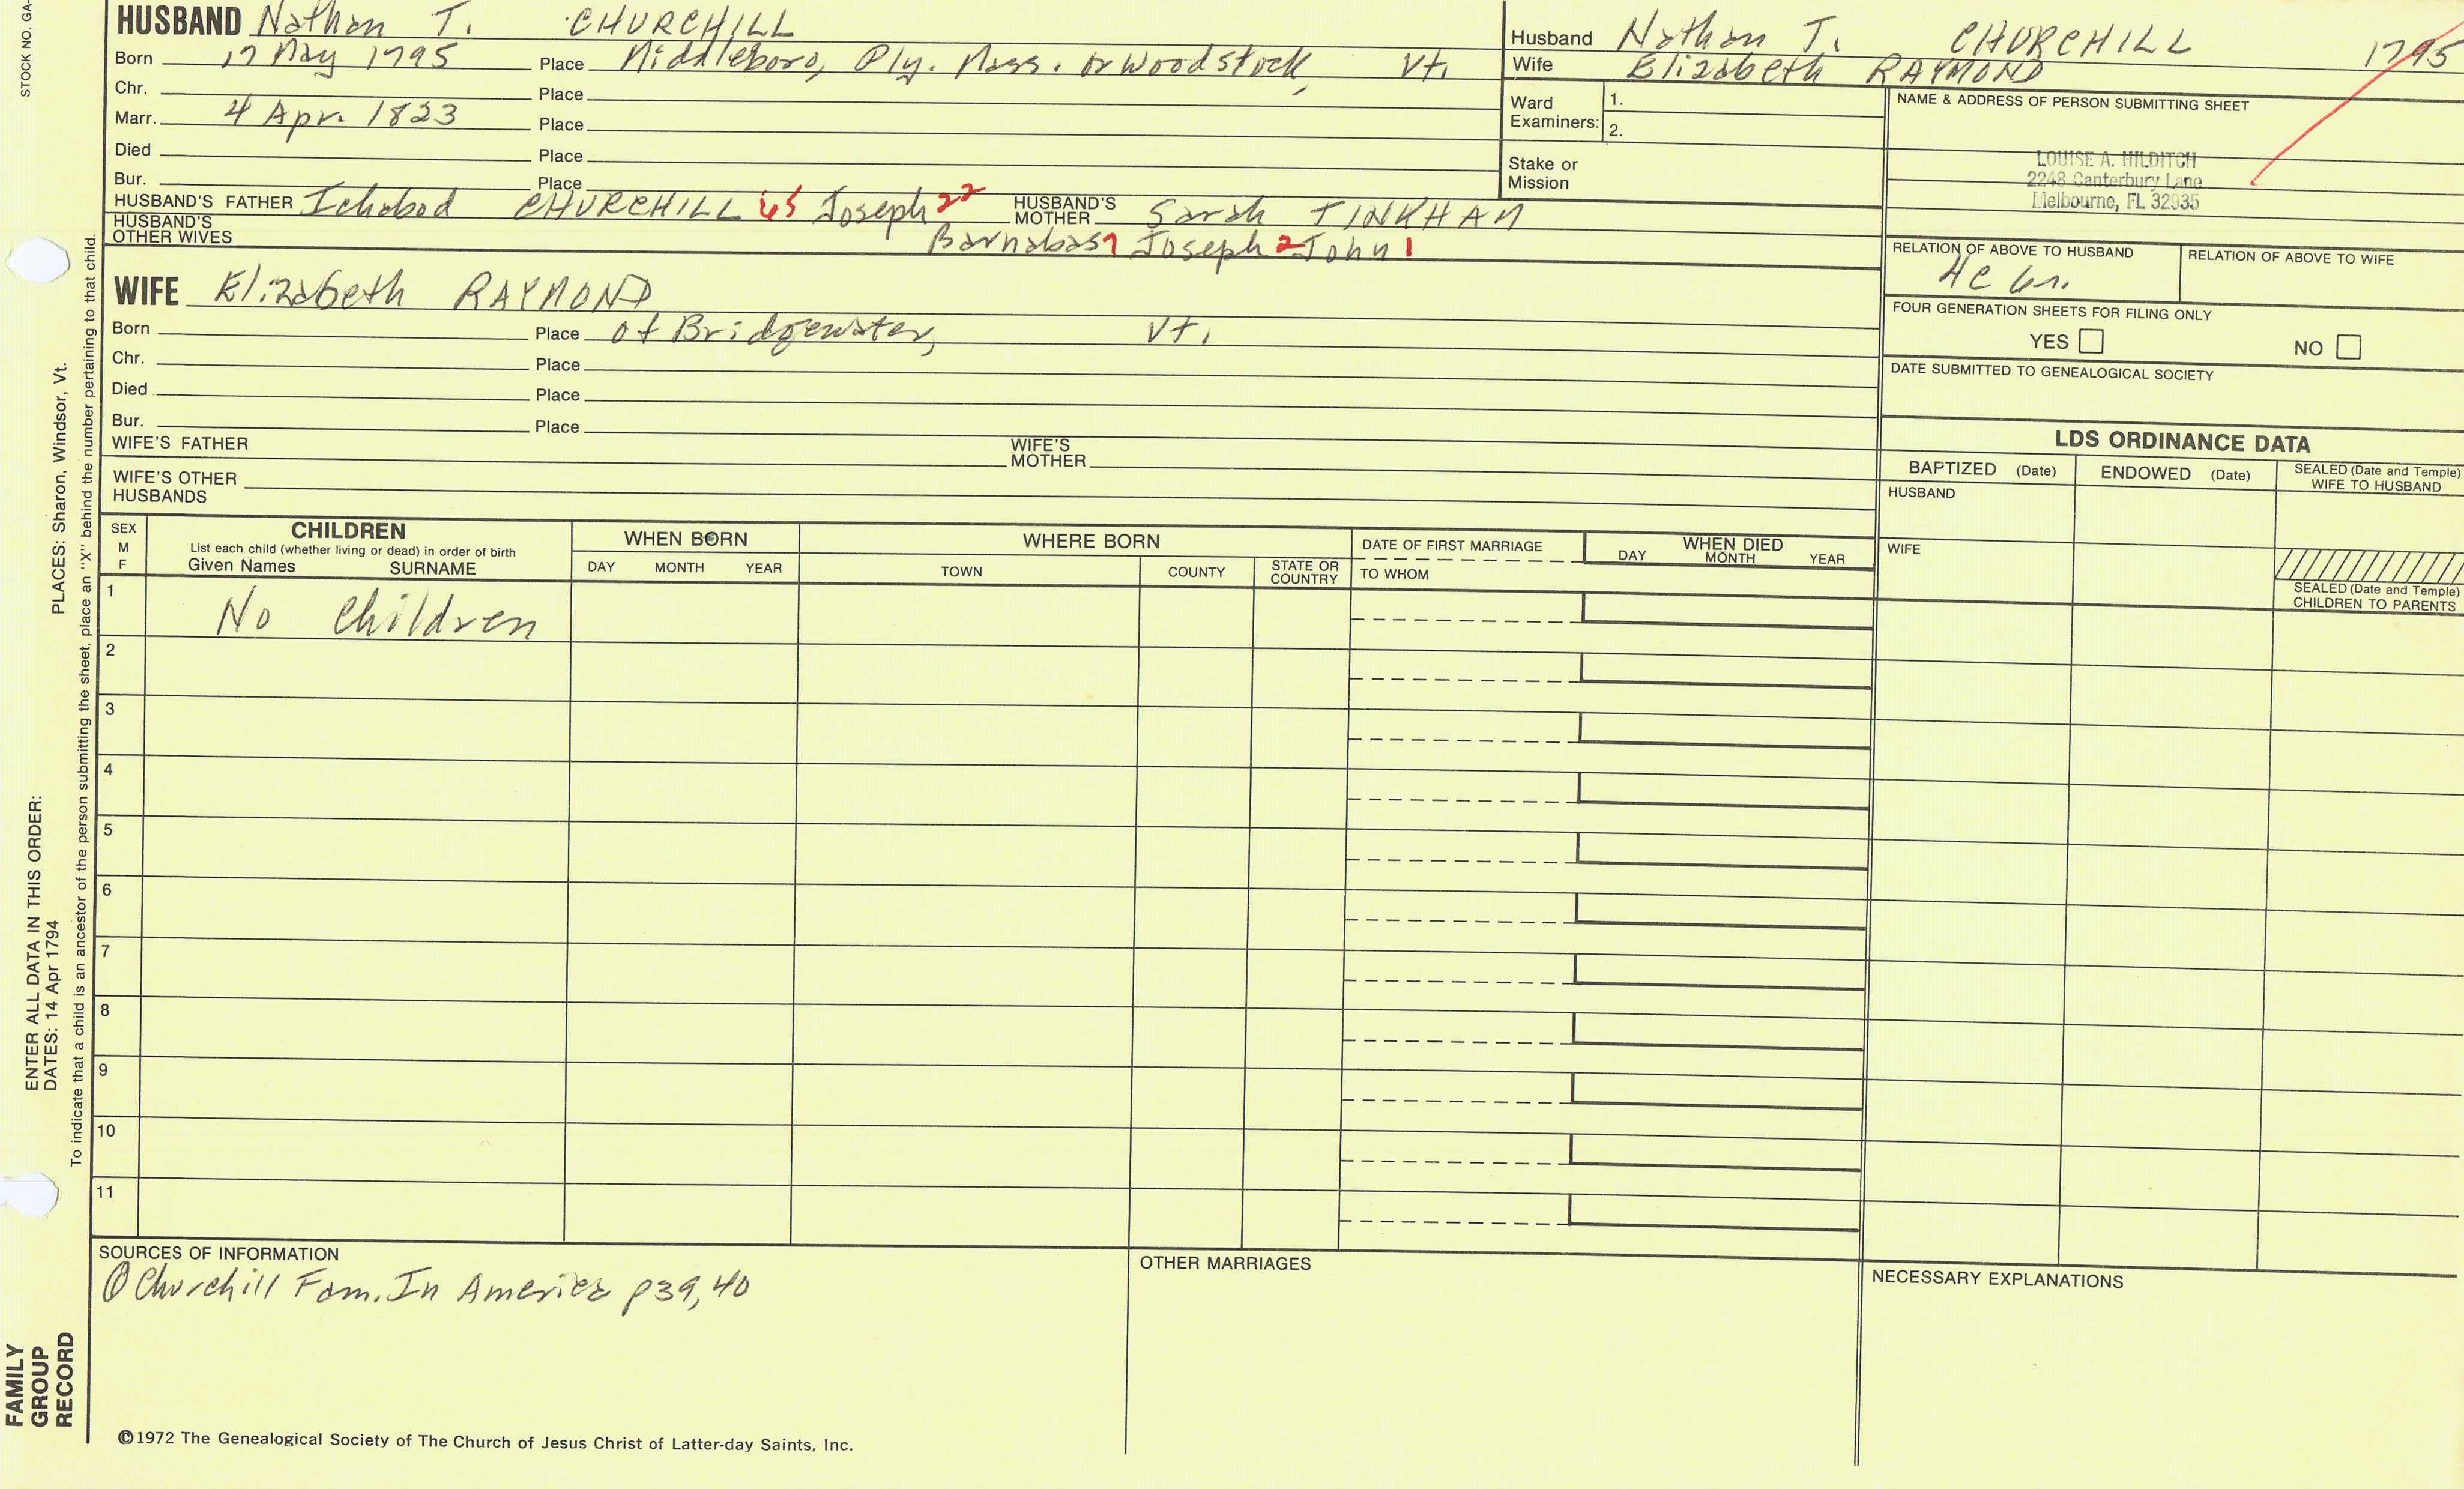 STOCK NO. GA-
HUSBAND Nathan T. CHURCHILL
Born 17 May 1795 Place Middleboro, Ply. Mass. or Woodstock, Vt.
Chr. Place
Marr. 4 Apr. 1823 Place
Died Place
Bur. Place
HUSBAND'S FATHER Ichabod CHURCHILL 65 Joseph 22 HUSBAND'S MOTHER Sarah TINKHAM
HUSBAND'S OTHER WIVES Barnabas 7 Joseph 2 John 1
Husband Nathan T. CHURCHILL 1795
Wife Elizabeth RAYMOND
Ward Examiners: 1.
2.
Stake or Mission
NAME & ADDRESS OF PERSON SUBMITTING SHEET
LOUISE A. HILDITCH
2248 Canterbury Lane
Melbourne, FL 32935
RELATION OF ABOVE TO HUSBAND RELATION OF ABOVE TO WIFE
4C
FOUR GENERATION SHEETS FOR FILING ONLY
YES NO
DATE SUBMITTED TO GENEALOGICAL SOCIETY
WIFE Elizabeth RAYMOND
Born Place of Bridgewater, Vt.
Chr. Place
Died Place
Bur. Place
WIFE'S FATHER WIFE'S MOTHER
WIFE'S OTHER HUSBANDS
LDS ORDINANCE DATA
BAPTIZED (Date) ENDOWED (Date) SEALED (Date and Temple) WIFE TO HUSBAND
HUSBAND
WIFE
SEALED (Date and Temple) CHILDREN TO PARENTS
SEX M F
CHILDREN
List each child (whether living or dead) in order of birth
Given Names SURNAME
WHEN BORN
DAY MONTH YEAR
WHERE BORN
TOWN COUNTY STATE OR COUNTRY
DATE OF FIRST MARRIAGE
TO WHOM
WHEN DIED
DAY MONTH YEAR
1 No Children
2
3
4
5
6
7
8
9
10
11
SOURCES OF INFORMATION
① Churchill Fam. In America p39,40
OTHER MARRIAGES
NECESSARY EXPLANATIONS
©1972 The Genealogical Society of The Church of Jesus Christ of Latter-day Saints, Inc.
FAMILY
GROUP
RECORD
ENTER ALL DATA IN THIS ORDER:
DATES: 14 Apr 1794 PLACES: Sharon, Windsor, Vt.
To indicate that a child is an ancestor of the person submitting the sheet, place an "X" behind the number pertaining to that child.